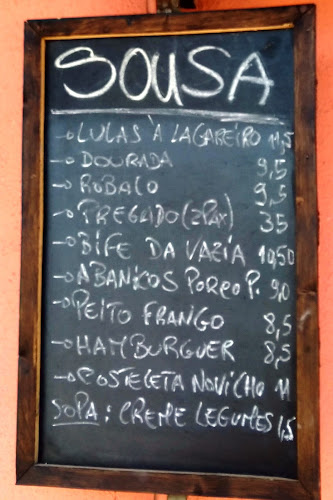 SOUSA
-o LULAS À LAGAREIRO 11,5
-o DOURADA 9,5
-o ROBALO 9,5
-o PREGADO (2PAX) 35
-o BIFE DA VAZIA 10,50
-o ABANICOS PORCO P. 9,0
-o PEITO FRANGO 8,5
-o HAMBURGUER 8,5
-o COSTELETA NOVILHO 11
SOPA: CREME LEGUMES 1,5